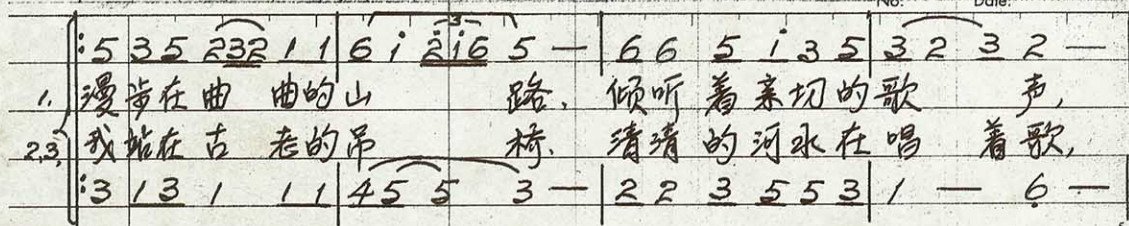 No: Date:
:5 35 232 1 1 | 6 i 2i6 5 — | 66 5 i 3 5 | 3 2 3 2 —
1. 漫步在曲 曲的山 路、倾听着亲切的歌 声,
2,3, 我站在古 老的吊 桥、清清的河水在唱 着歌,
:3 13 1 1 1 | 45 5 3 — | 2 2 3 5 5 3 | 1 — 6 —